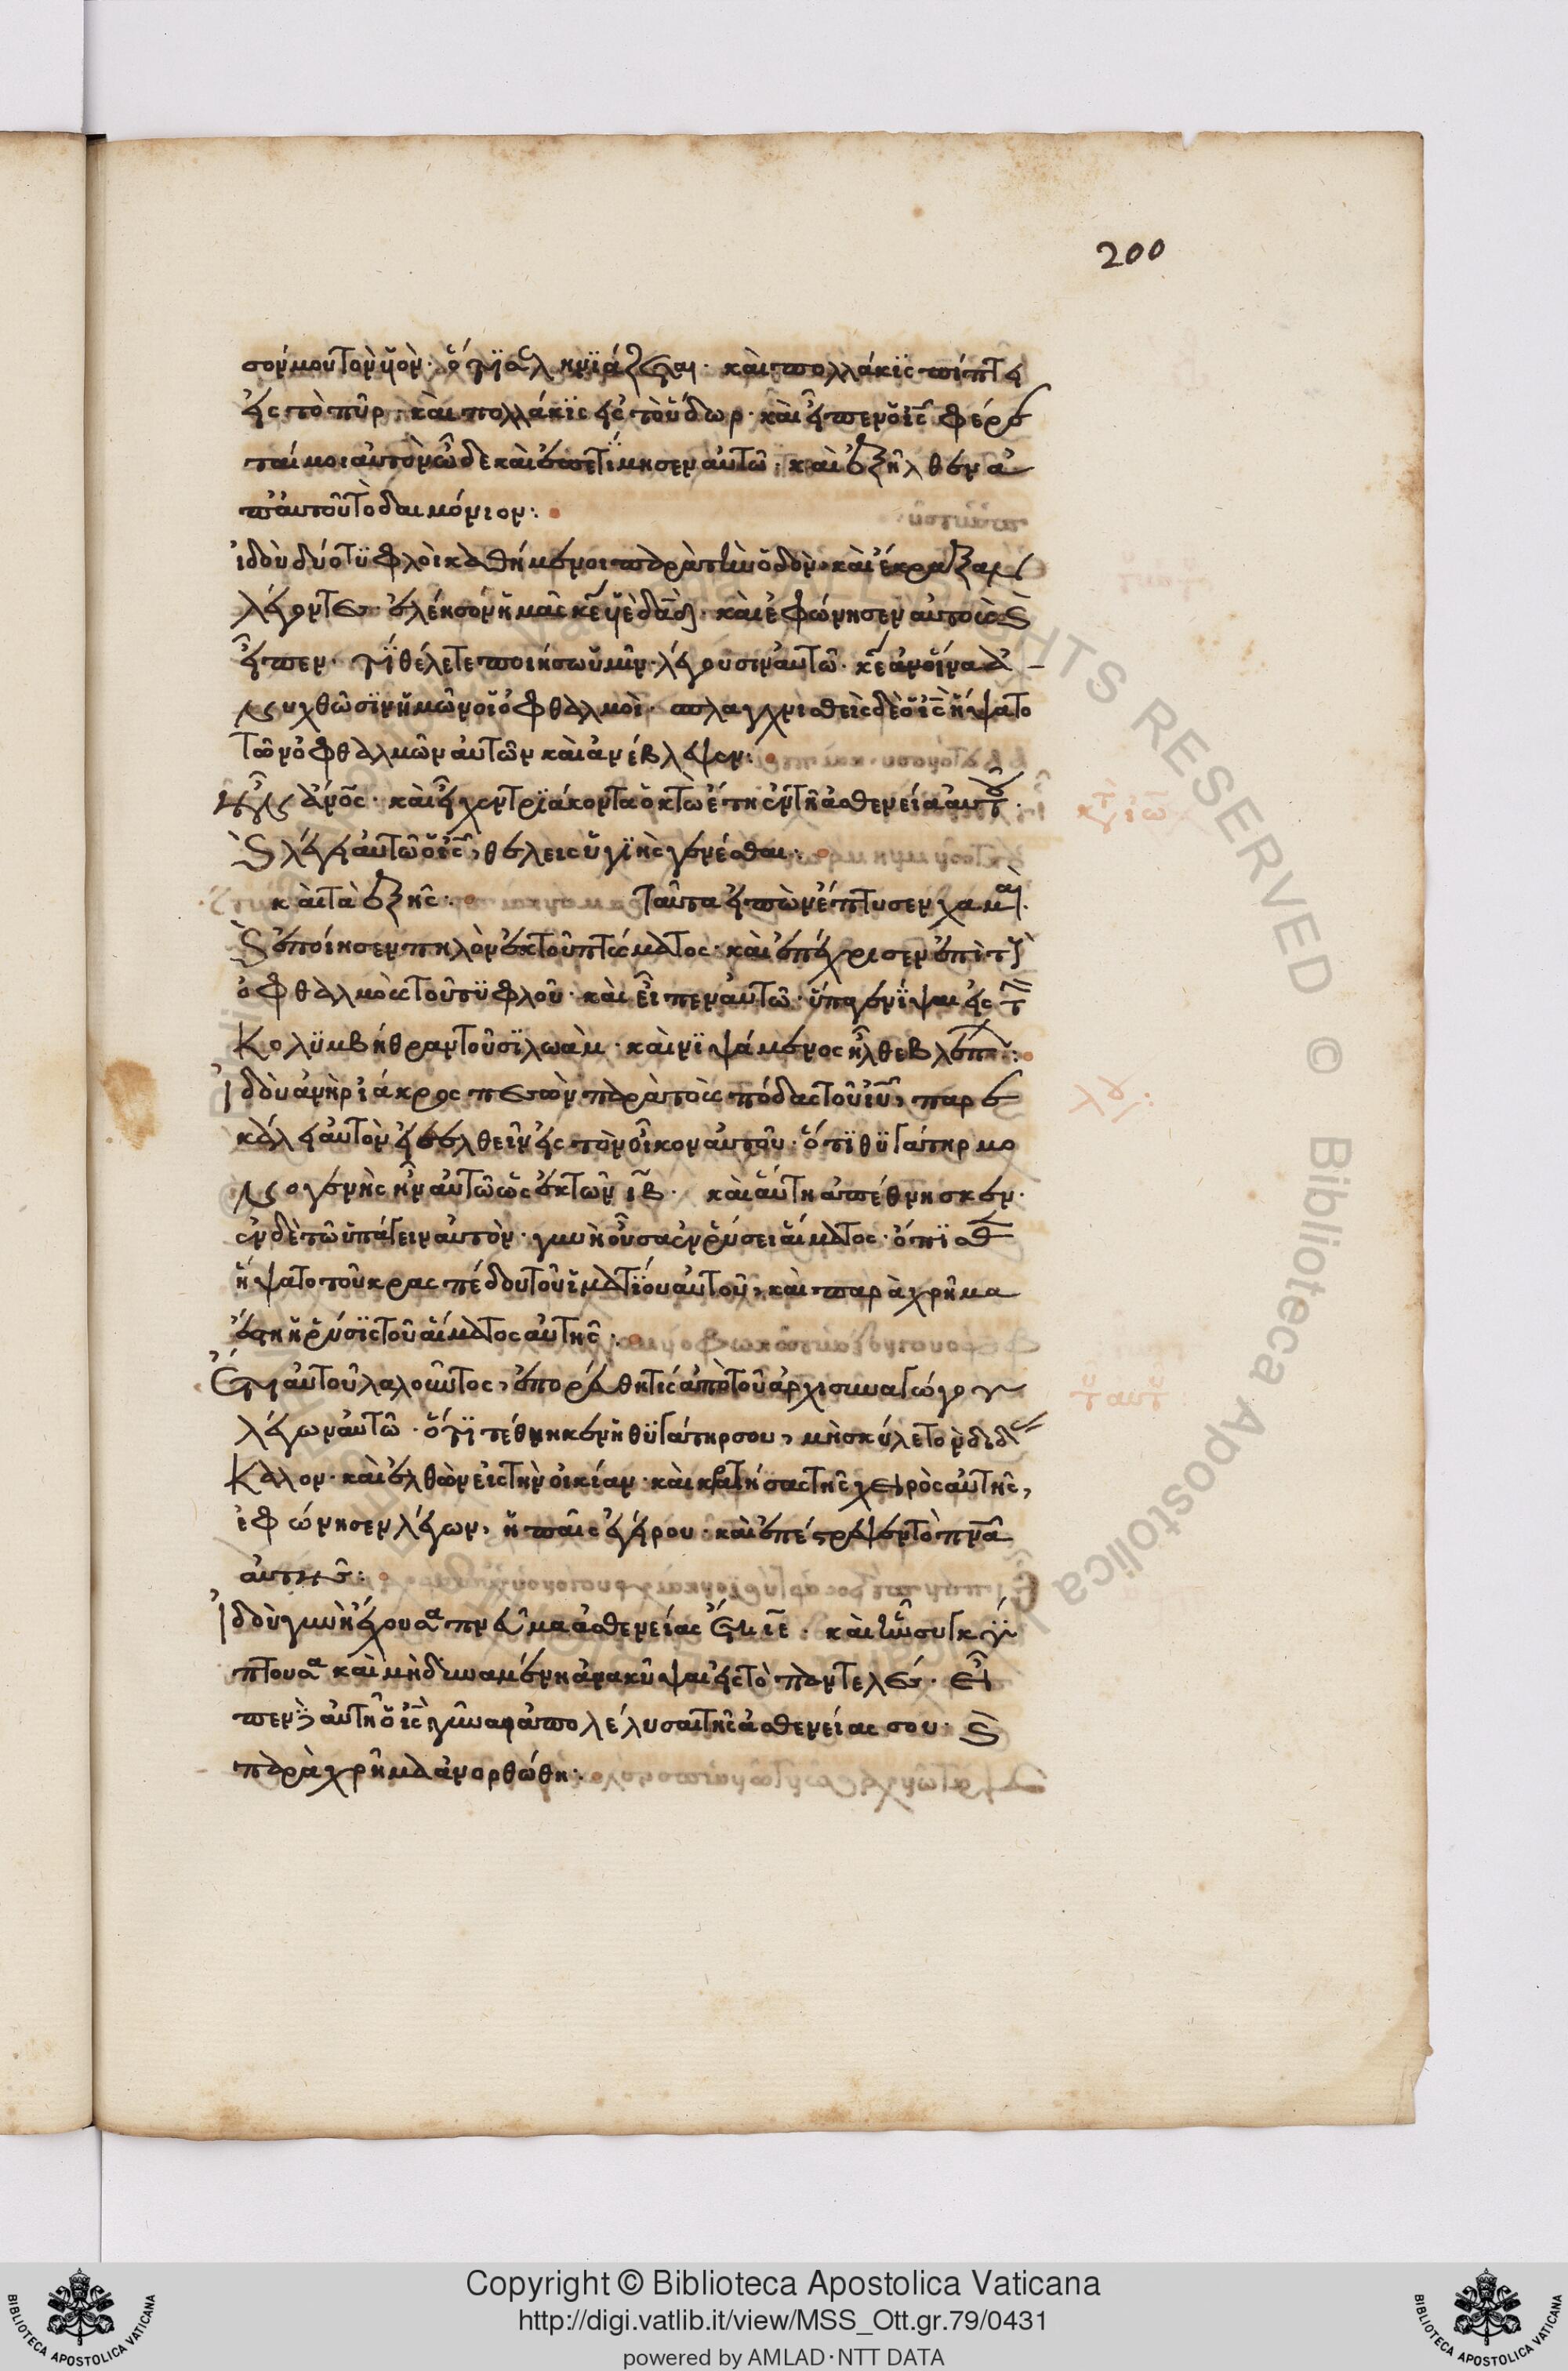 200
σόν μου τὸν ὑὸν· ὅτι σεληνϊάζεται· καὶ πολλάκϊς πίπτει
εἰς τὸ πῦρ· καὶ πολλάκϊς εἰς τὸ ὕδωρ· καὶ εἶπεν ὁ ις φέρε
ταί μοι αὐτὸν ὧδε καὶ ἐπετίμησεν αὐτῶ· καὶ ἐξῆλθεν ἀ
π' αὐτοῦ τὸ δαιμόνιον:
ἰδοὺ δύο τϋφλοὶ καθήμενοι παρὰ τὴν ὁδὸν· καὶ ἐκραξαν
λέγοντες· ἐλέησόν ἡμᾶς κε ὑὲ δαδ· καὶ ἐφώνησεν αὐτοὺς ϛ
εἶπεν· τί θέλετε ποιήσω ὑμῖν· λέγουσιν αὐτῶ· κε ἵνα ἀ
νυχθῶσϊν ἡμῶν οἱ ὀφθαλμοὶ· σπλαγχνισθεὶς δὲ ὁ ις ἥψατο
τῶν ὀφθαλμῶν αὐτῶν καὶ ἀνέβλεψεν:
ἦν τις ἀνος· καὶ εἶχεν τριάκοντα ὀκτὼ ἔτη ἐν τῆ ἀσθενεία αὐτοῦ·
ϛ λέγει αὐτῶ ὁ ις, θέλεις ὑγϊὴς γενέσθαι:
κτ ιω
καὶ τὰ ἑξῆς: ταῦτα εἰπὼν ἔπτυσεν χαμαὶ·
ϛ ἐποίησεν πηλὸν ἐκ τοῦ πτύσματος· καὶ ἐπέχρισεν ἐπὶ τοὺς
ὀφθαλμοὺς τοῦ τϋφλοῦ· καὶ εἶπεν αὐτῶ· ὕπαγε νίψαι εἰς τὴν
Κολϋμβήθραν τοῦ σϊλωὰμ· καὶ νϊψάμενος ἦλθε βλέπων:
ἰδοὺ ἀνὴρ ἰάηρος πεσὼν παρὰ τοὺς πόδας τοῦ ιυ, παρε
κάλει αὐτὸν εἰσελθεῖν εἰς τὸν οἶκον αὐτοῦ· ὅτϊ θϋγάτηρ μο
νογενὴς ἦν αὐτῶ ὡς ἐκτῶν ιβ· καὶ αὕτη ἀπέθνησκεν·
ἐν δὲ τῶ ὑπάγειν αὐτὸν· γυνὴ οὖσα ἐν ῥύσει αἵματος· ὄπϊσθεν
ἥψατο τοῦ κρασπέδου τοῦ ἱματίου αὐτοῦ, καὶ παρὰχρῆμα
ἔστη ἡ ῥύσϊς τοῦ αἵματος αὐτῆς:
ἔτι αὐτοῦ λαλοῦντος, ἐπορεύθη τίς ἀπὸ τοῦ ἀρχισυναγώγου
λέγων αὐτῶ· ὅτϊ τέθνηκεν ἡ θϋγάτηρ σου, μὴ σκύλε τὸν διδασ
Κάλον· καὶ ἐλθὼν εἰς τὴν οἰκίαν· καὶ κρατήσας τῆς χειρὸς αὐτῆς,
ἐφώνησεν λέγων, ἡ παῖς ἐγείρου· καὶ ἐπέστρεψεν τὸ πνα
αὐτῆς:
ἰδοὺ γυνὴ ἔχουσα πνεῦμα ἀσθενείας ἔτη ιε· καὶ ἦν συγκύ
πτουσα καὶ μὴ δυναμένη ἀνακῦψαι εἰς τὸ παντελές· εἶ
πεν δὲ αὐτῆ ὁ ις γύναι ἀπολέλυσαι τῆς ἀσθενείας σου· ϛ
παραχρῆμα ἀνορθώθη:
Copyright © Biblioteca Apostolica Vaticana
http://digi.vatlib.it/view/MSS_Ott.gr.79/0431
powered by AMLAD·NTT DATA
BIBLIOTECA APOSTOLICA VATICANA
BIBLIOTECA APOSTOLICA VATICANA